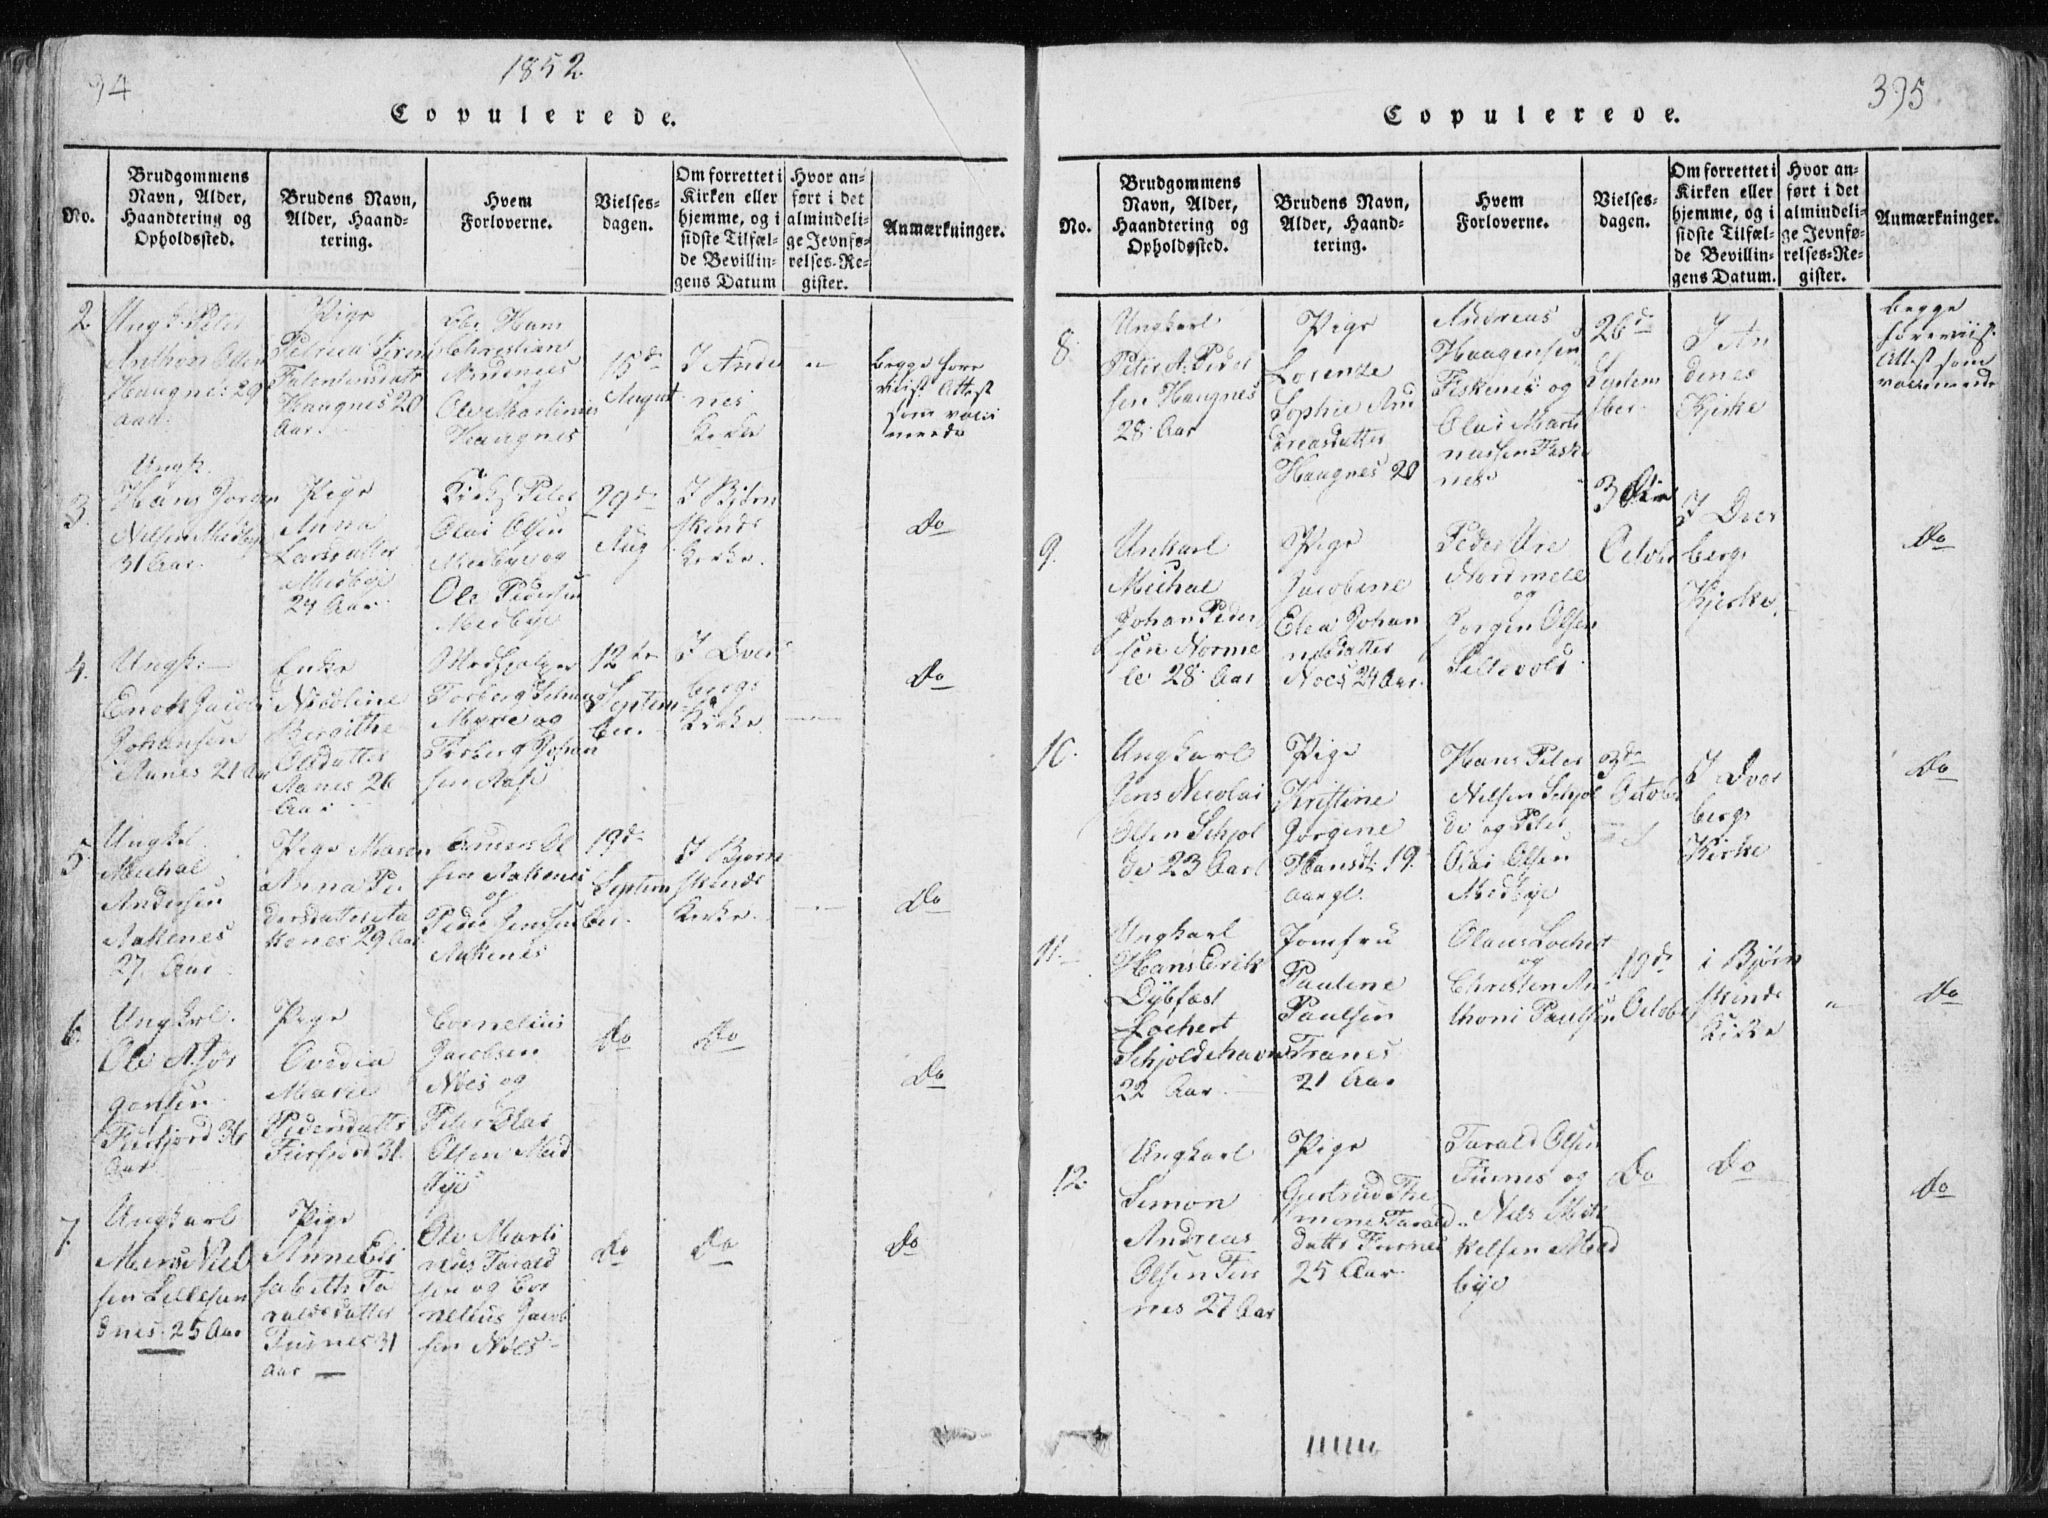 94
1852
Copulerede.
No.
Brudgommens
Navn, Alder,
Haandtering og
Opholdssted.
Brudens Navn,
Alder, Haand-
tering.
Hvem
Forloverne.
Vielses-
dagen.
Om forrettet i
Kirken eller
hjemme, og i
sidste Tilfæl-
de Bevillin-
gens Datum
Hvor an-
ført i det
almindeli-
ge Jevnfø-
relses-Re-
gister.
Anmærkninger.
2.
Ungk. Peter
Anthon Olsen
Haugnes 29
Aar.
Pige
Haugnes 20
Aar.
Hans
Christian
Andenes
og
Ole Martinus
Haugnes
15de
August
I Ande
nes
Kirke
"
begge fore
viist Attest
som vacci
nerede
3.
Ungk.
Hans Joran
Nilsen Medbye
31 Aar.
Pige
Anna
Larsdatter
Medbye
24 Aar.
Peter
Olai Olsen
Medbye og
Ole Pedersen
Medbye
29de
Aug
I Bjørn
skinds
Kirke.
Do
4.
Ungk.
Enok Jacob
Johansen
Aanes 21 Aar
Enke
Nicoline
Bergithe
Olsdatter
Aanes 26
Aar
Torberg
Myre og
Torberg Johan
sen
12te
Septem
ber.
I Dver
bergs
Kirke
Do
5.
Ungkl.
Michal
Andersen
Aakenes
27 Aar.
Pige Maren
Anna Pe
dersdatter Aa
kenes 29 Aar
Ol
sen Aakenes
og
Peder Jensen
Aakenes
19de
Septem
ber.
I Bjørn
skinds
Kirke.
Do
6.
Ungkrl.
Ole A. Jør
gensen
Aar
Pige
Ovedia
Marie
Pedersdattr
31.
Cornelius
Jacobsen
Noes og
Peter Olai
Olsen Med
bye
Do
Do
Do
7.
Ungkarl
Mons Niel
sen Lillesan
dnes 25 Aar
Pige
Anne Eli
sabeth Ta
raldsdatter
31
Aar
Ole Marti
nus Tarald
sen og Cor
nelius Jacob
sen Noes
Do
Do
Do
395
Copulerede.
No.
Brudgommens
Navn, Alder,
Haandtering og
Opholdssted.
Brudens Navn,
Alder, Haand-
tering.
Hvem
Forloverne.
Vielses-
dagen.
Om forrettet i
Kirken eller
hjemme, og i
sidste Tilfæl-
de Bevillin-
gens Datum.
Hvor an-
ført i det
almindeli-
ge Jevnfø-
relses-Re-
gister.
Anmærkninger.
8.
Ungkarl
Peter A. Peder
sen Haugnes
28 Aar
Pige
Lorenze
Sophie And
dreasdatter
Haugnes 20
Andreas
Haagensen
Fiskenes og
Olai Marti
nussen Fiske
nes
26de
Septem
ber.
I An
denes
Kjerke
begge
foreviist
Attest som
vaccinerede
9.
Unkarl
Michal
Johan Peder
sen Norme
le 28 Aar
Pige
Jacobine
Elea Johan
nesdatter
Noes 24 Aar.
Peder Ure
Nordmele
og
Jørgen Olsen
3die
October
I Dver
bergs
Kjerke.
Do
10.
Ungkarl
Jens Nicolai
Olsen Schjol
de 23 Aar
Pige
Kristine
Jørgine
Hansdt. 19.
aar gl.
Hans Peter
Nilsen Schjol
de og Peter
Olai Olsen
Medbye
3de
October
I Dver
bergs
Kirke
Do
11.
Ungkarl
Hans Erik
Dybfæst
Lochert
Schjoldehavn
22 Aar.
Jomfru
Pauline
Paulsen
Tranes
21 Aar
Olaus Lochert
og
Christen An
thoni Paulsen
10de
October
i Bjørn
skinds
Kirke
"
Do
12.
Ungkarl
Simon
Andreas
Olsen
nes 27 Aar
Pige
Gjertrud The
mine Tarald
25 Aar.
Tarald Olsen
og
Nils Mik
kelsen Med
bye
Do
Do
Do